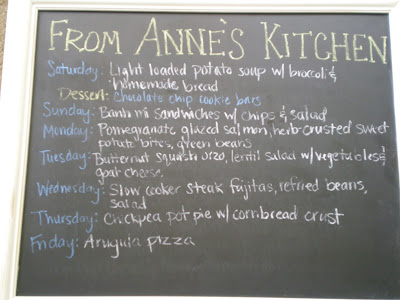 FROM ANNE'S KITCHEN
Saturday: Light loaded potato soup w/ broccoli &
homemade bread
Dessert: Chocolate chip cookie bars
Sunday: Banh mi sandwiches w/ chips & salad
Monday: Pomegranate glazed salmon, herb-crusted sweet
potato bites, green beans
Tuesday: Butternut squash orzo, lentil salad w/ vegetables &
goat cheese
Wednesday: Slow cooker steak fajitas, refried beans,
salad
Thursday: Chickpea pot pie w/ cornbread crust
Friday: Arugula pizza